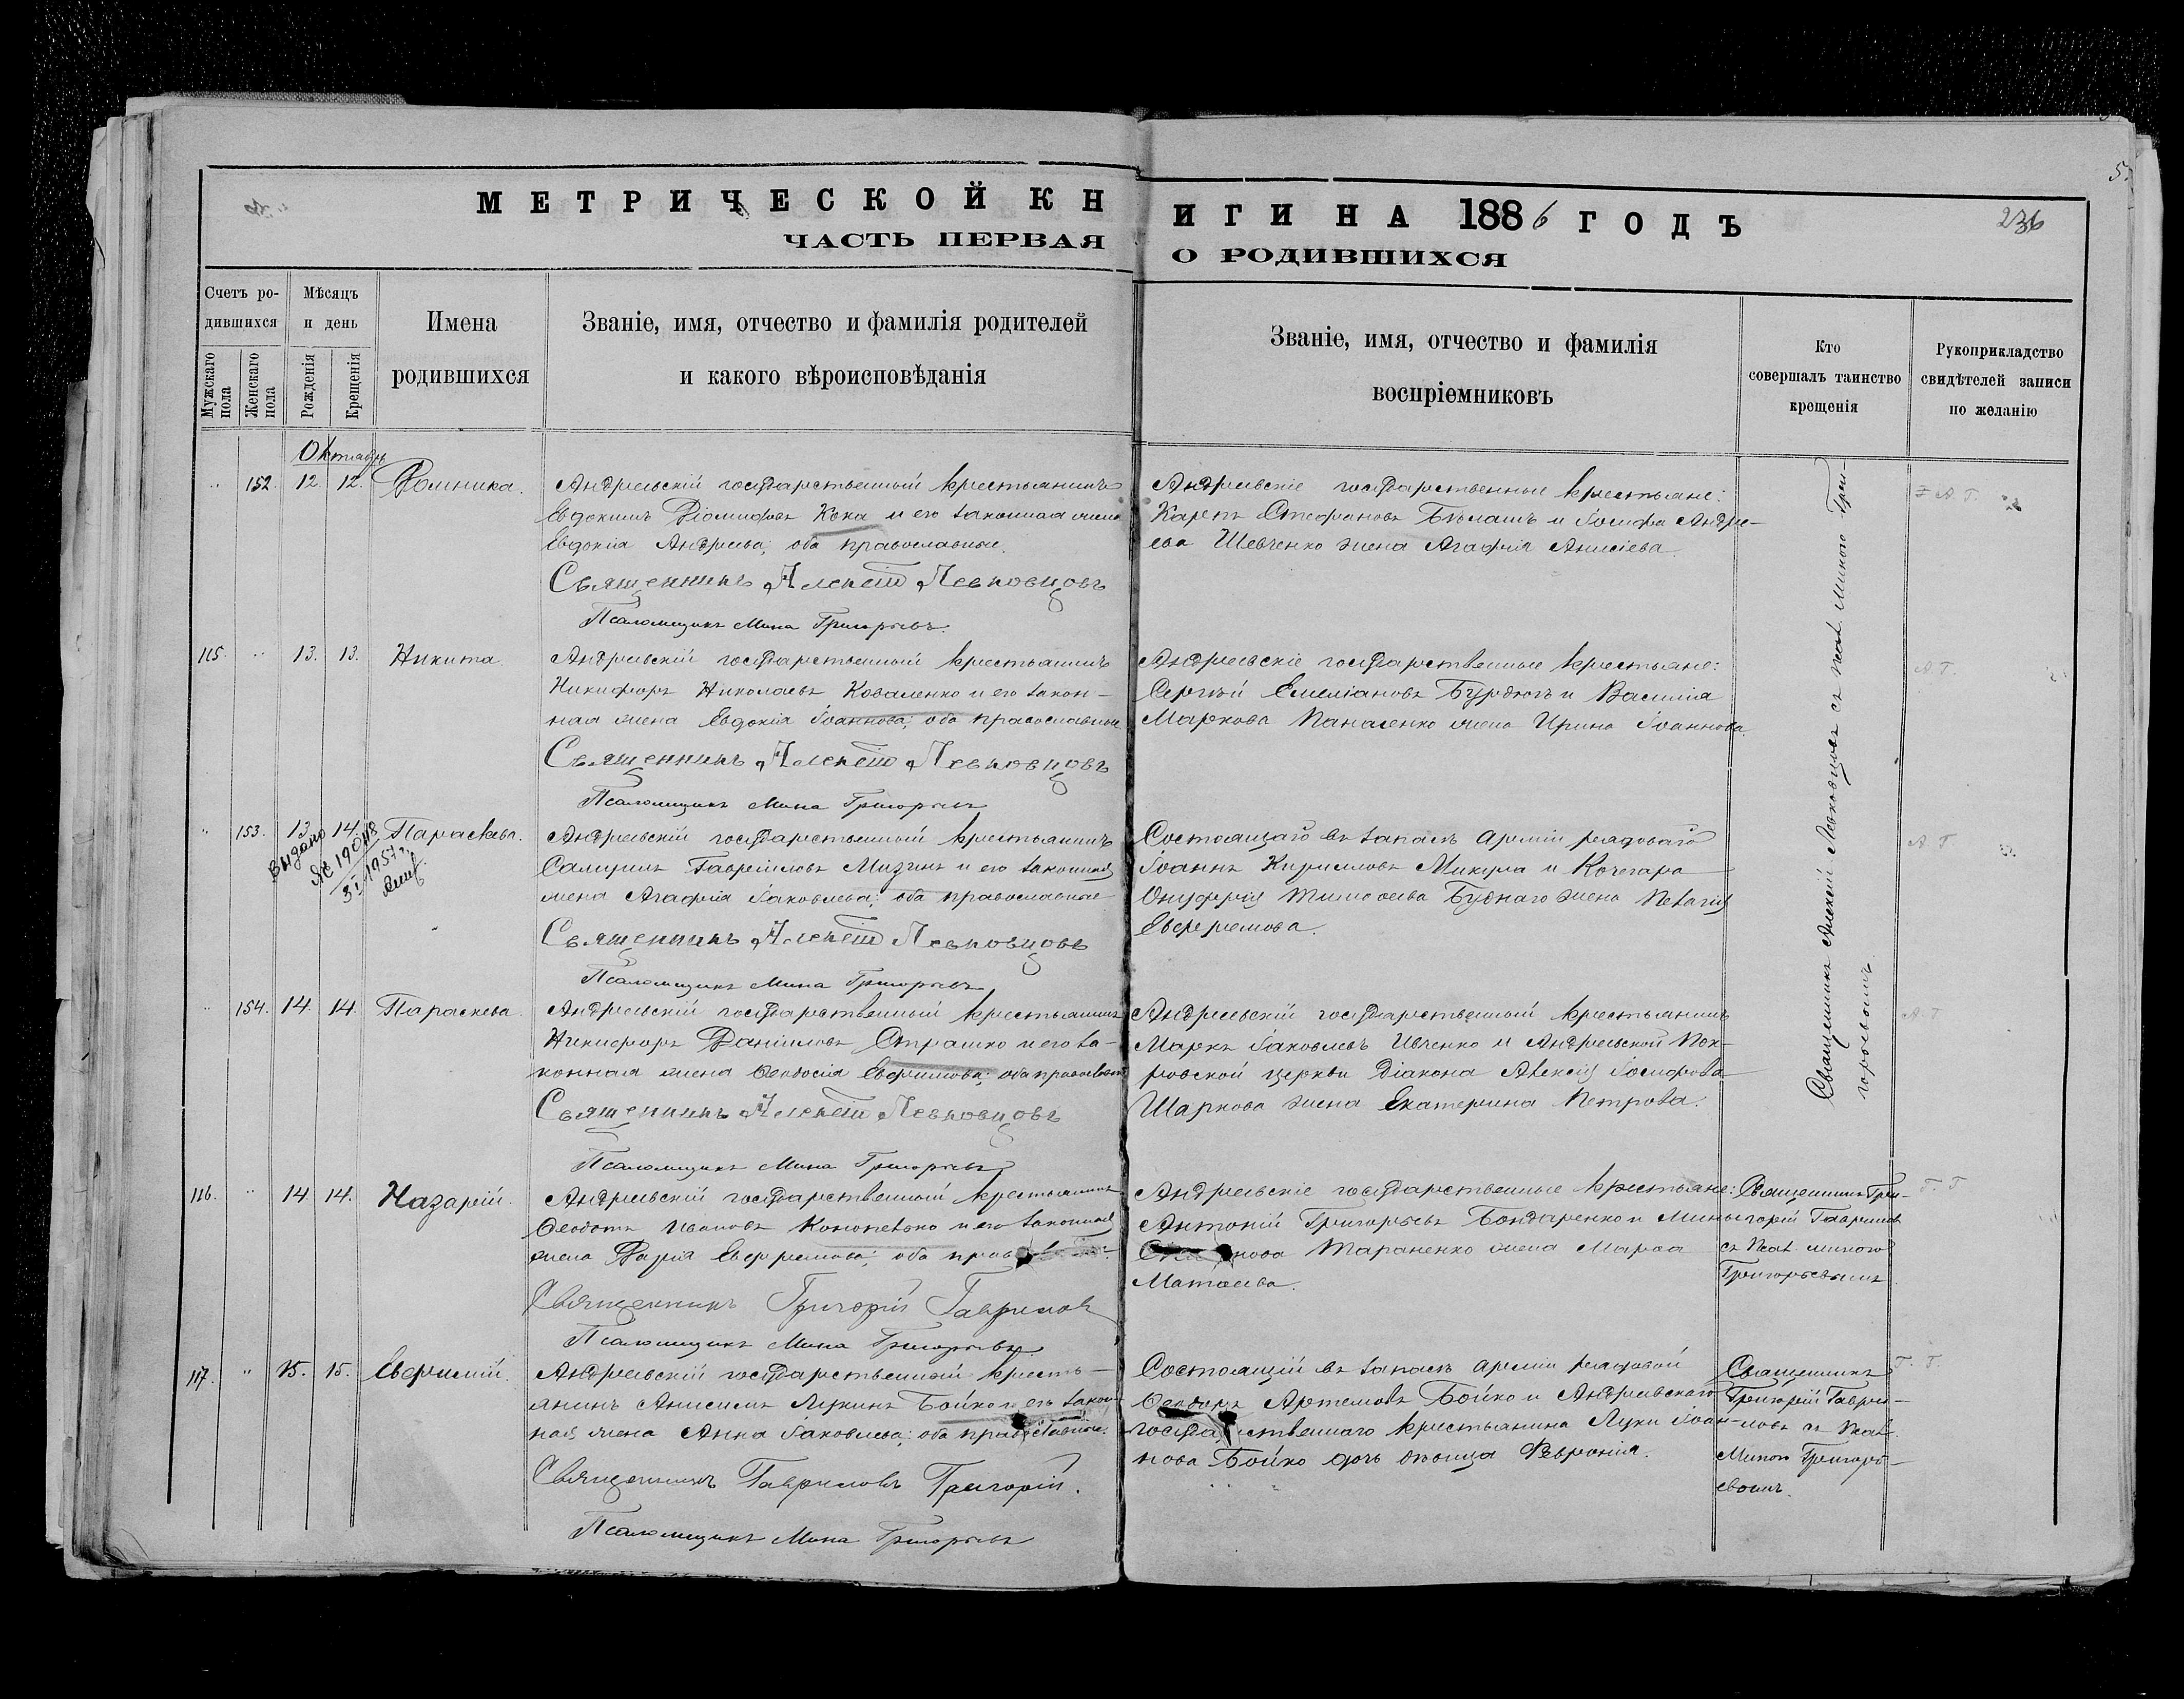 МЕТРИЧЕСКОЙ КНИГИ НА 1886 ГОДЪ
236
ЧАСТЬ ПЕРВАЯ О РОДИВШИХСЯ
Счетъ ро-
дившихся
Мужскаго пола
Женскаго пола
Мѣсяцъ
и день
Рожденія
Крещенія
Имена
родившихся
Званіе, имя, отчество и фамилія родителей
и какого вѣроисповѣданія
Званіе, имя, отчество и фамилія
воспріемниковъ
Кто
совершалъ таинство
крещенія
Рукоприкладство
свидѣтелей записи
по желанію
Октябрь
" 152. 12. 12. Домника.
Андреевскій государственный крестьянинъ
Евдокимъ Діомидовъ Кока и его законная жена
Евдокія Андреева; оба православные.
Священникъ Алексій Левковцовъ
Псаломщикъ Мина Григорьевъ.
Андреевскіе государственные крестьяне:
Карпъ Стефановъ Бѣлашъ и Іосифа Андре-
ева Шевченко жена Агафія Анисіева.
115. " 13. 13. Никита.
Андреевскій государственный крестьянинъ
Никифоръ Николаевъ Коваленко и его закон-
ная жена Евдокія Іоаннова; оба православные
Священникъ Алексій Левковцовъ
Псаломщикъ Мина Григорьевъ
Андреевскіе государственные крестьяне:
Сергѣй Емеліановъ Бурдюгъ и Василія
Маркова Панасенко жена Ирина Іоаннова.
" 153. 13. 14. Параскева.
Выдано
№ 190418
3/I 1957 г.
Андреевскій государственный крестьянинъ
Самуилъ Гавріиловъ Мизинъ и его законная
жена Агафія Іаковлева; оба православные
Священникъ Алексій Левковцовъ
Псаломщикъ Мина Григорьевъ
Состоящаго въ запасѣ арміи рядоваго
Іоаннъ Кирилловъ Микула и Кочегара
Онуфрія Тимофеева Буднаго жена Пелагія
Евфремова.
" 154. 14. 14. Параскева
Андреевскій государственный крестьянинъ
Никифоръ Даніиловъ Страшко и его за-
конная жена Феодосія Евфимова; оба православн
Священникъ Алексій Левковцовъ
Псаломщикъ Мина Григорьевъ
Андреевскій государственный крестьянинъ
Маркъ Іаковлевъ Ивченко и Андреевской Пок-
ровской церкви діакона Алексія Іосифова
Шаркова жена Екатерина Петрова.
Священникъ Алексій Левковцовъ съ псал. Миною Гри-
горьевымъ.
116. " 14 14. Назарій.
Андреевскій государственный крестьянинъ
Феодотъ Ивановъ Конопелько и его законная
жена Дарія Евфремова; оба прав
Священникъ Григорій Гавриловъ
Псаломщикъ Мина Григорьевъ.
Андреевскіе государственные крестьяне:
Антоній Григорьевъ Бондаренко и Мины
нова Тараненко жена Марѳа
Матѳеева.
Священникъ Гри-
горій Гавриловъ
съ псал. Миною
Григорьевымъ
117. " 15. 15. Евфимій.
Андреевскій государственный кресть-
янинъ Анисимъ Лукинъ Бойко и его закон-
ная жена Анна Іаковлева; оба православные.
Священникъ Гавриловъ Григорій.
Псаломщикъ Мина Григорьевъ
Состоящій въ запасѣ арміи рядовой
Феодоръ Артемовъ Бойко и Андреевскаго
государственнаго крестьянина Луки Іоан-
нова Бойко дочь дѣвица Февронія.
Священникъ
Григорій Гаври-
ловъ съ псал.
Миною Григорь-
евымъ.